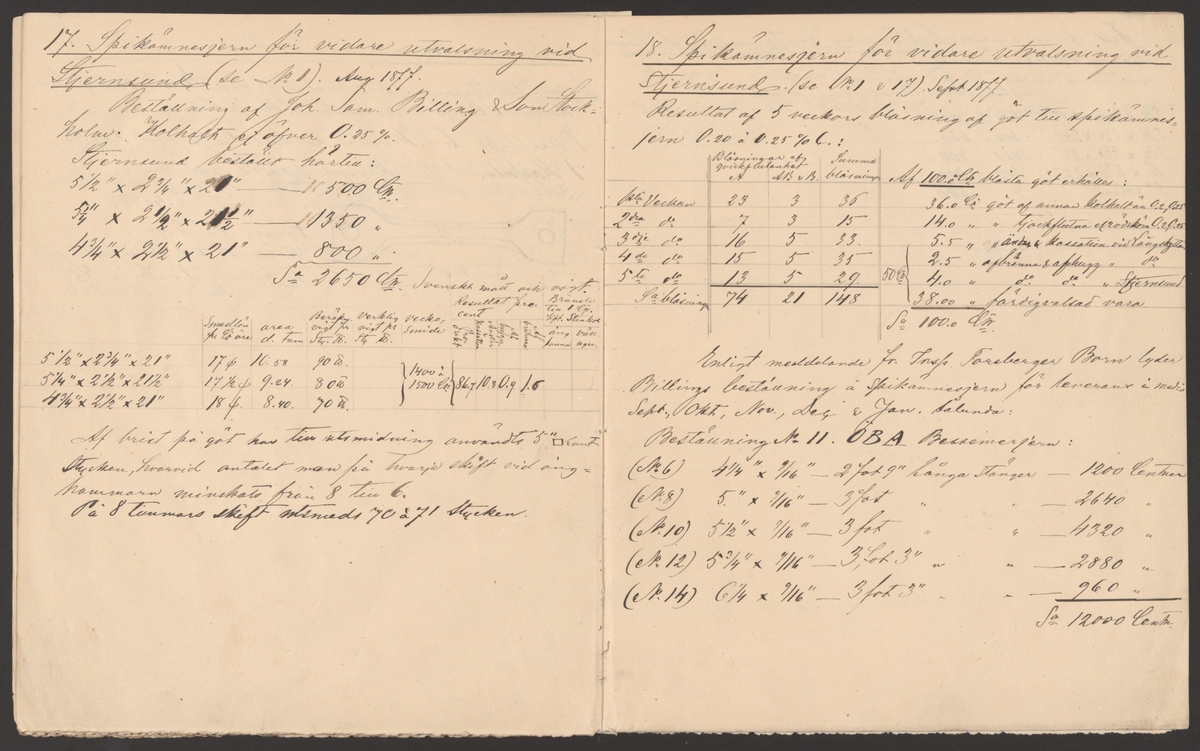 17. Spikämnesjern för vidare utvalsning vid
Stjernsund (Se №1). Aug 1877.
Beställning af Joh. Sam. Billing & Son Stock-
holm. Kolhalt ej öfver 0.25 %.
Stjernsund beställt härtill:
5 1/2" x 2 3/4" x 21" — 500 Ctr.
5 1/4" x 2 1/2" x 21 1/2" — 1350 "
4 3/4" x 2 1/2" x 21" — 800 "
Sa 2650 Ctr. Svenskt mått och vigt.
Smedlön area Beräk. Verklig vecko- Resultat pro cent
5 1/2" x 2 3/4" x 21" 17 ¢ 10.58 90 ℔
5 1/4" x 2 1/2" x 21 1/2" 17 1/2 ¢ 9.24 80 ℔ 1400 à 1500 Ctr 86.7 10.8 0.9 1.6
4 3/4" x 2 1/2" x 21" 18 ¢. 8.40. 70 ℔.
Af brist på göt har till utsmidning användts 5" □ kant
Stycken, hvarvid antalet man på hvarje skift vid ång-
hammarn minskats från 8 till 6.
På 8 timmars skift utsmeds 70 à 71 Stycken.
18. Spikämnesjern för vidare utvalsning vid
Stjernsund. (se №1 & 17) Sept 1877.
Resultat af 5 veckors blåsning af göt till spikämnes-
jern 0.20 à 0.25 % C.:
Blåsningar af götqvalitet Summa
A AB & B. blåsningar
1sta Veckan 23 3 36
2dra do 7 3 15
3dje do 16 5 33.
4de do 15 5 35
5te do 13 5 29.
Sa blåsning 74 21 148
Af 100.0 Ctr blåsta göt erhålles:
36.0 Ctr göt af annan kolhalt än 0.2 à 0.25
14.0 " " tjockflutna & rödskörn 0.2 à 0.25
5.5 " ändar & kassation vid Långshyttan
2.5 " afbränna & afhugg " do
50 Ctr 4.0 " do do " Stjernsund
38.00 " färdigvalsad vara.
Sa 100.0 Ctr.
Enligt meddelande fr. Insp. Torsberger Born lyder
Billings beställning å spikämnesjern för leverans i medio
Sept., Okt., Nov., Dej & Jan. sålunda:
Beställning № 11. ÖBA Bessemerjern:
(№ 6) 4 1/4" x 9/16" — 2 fot 9" långa stänger — 1200 Centner
(№ 8) 5" x 9/16" — 3 fot " " — 2640 "
(№ 10) 5 1/2" x 9/16" — 3 fot " " — 4320 "
(№ 12) 5 3/4" x 9/16" — 3 fot 3" " " — 2880 "
(№ 14) 6 1/4 x 9/16" — 3 fot 3" " " — 960 "
Sa 12000 Centn.